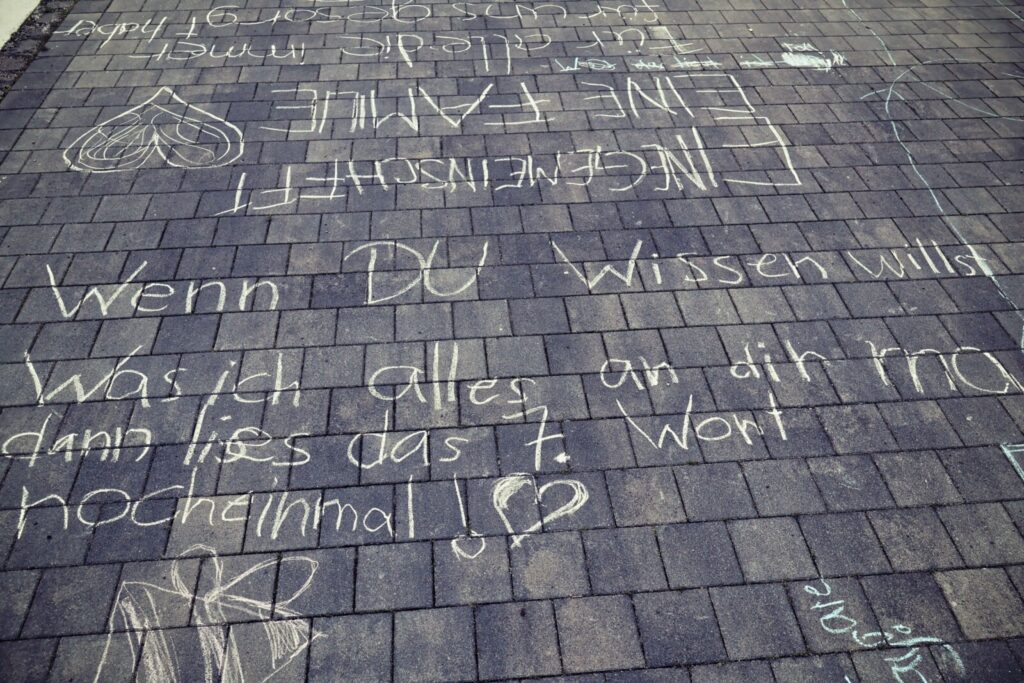 EINEGEMEINSCHFT
EINE FAMILIE
Für alle die immer
für uns gesorgt haben
Wenn DU Wissen willst
Was ich alles an dir ma
dann lies das 7. Wort
nocheinmal!